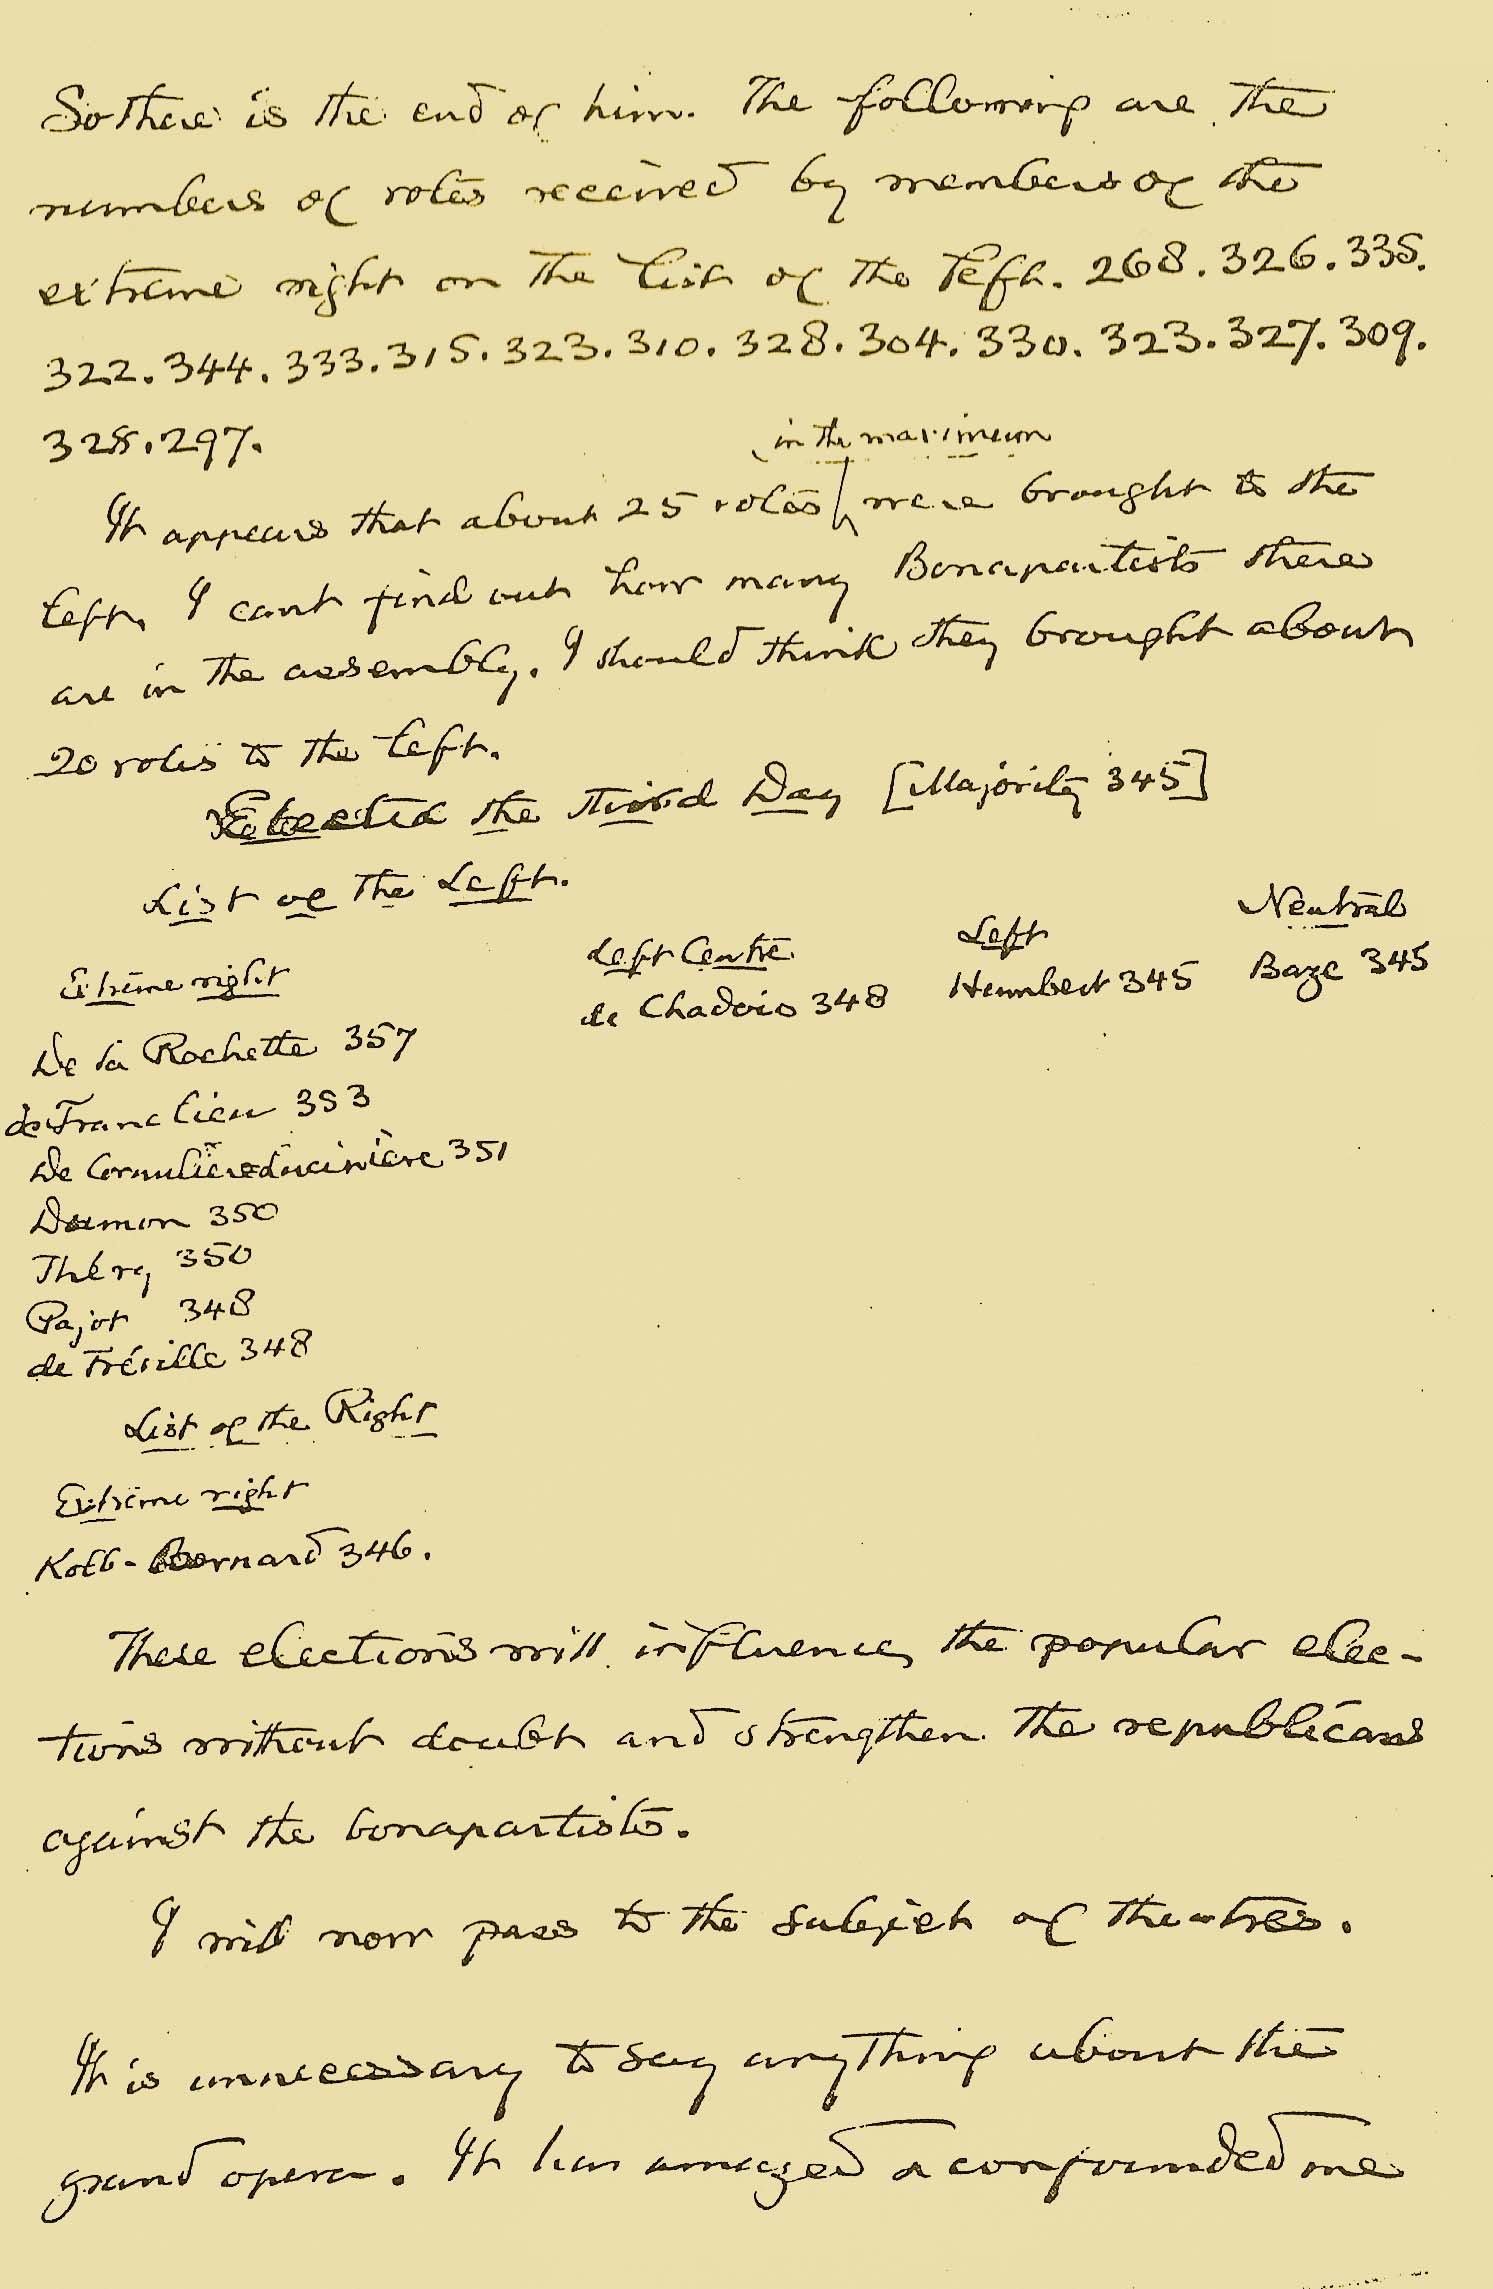 So there is the end of him. The following are the
numbers of votes received by members of the
extreme right on the list of the left. 268. 326. 335.
322. 344. 333. 315. 323. 310. 328. 304. 330. 323. 327. 309.
328. 297.
in the maximum
It appears that about 25 votes were brought to the
left. I cant find out how many Bonapartists there
are in the assembly. I should think they brought about
20 votes to the left.
Elected the third Day [Majority 345]
List of the Left.
Extreme right
Left Centre
Left
Neutral
de Chadois 348
Humbert 345
Baze 345
De la Rochette 357
de Franclieu 353
De Cornulière-Lucinière 351
Dumon 350
Théry 350
Pajot 348
de Tréville 348
List of the Right
Extreme right
Kolb-Bernard 346.
These elections will influence the popular elec-
tions without doubt and strengthen the republicans
against the bonapartists.
I will now pass to the subject of theatres.
It is unnecessary to say anything about the
grand opera. It has amazed & confounded me